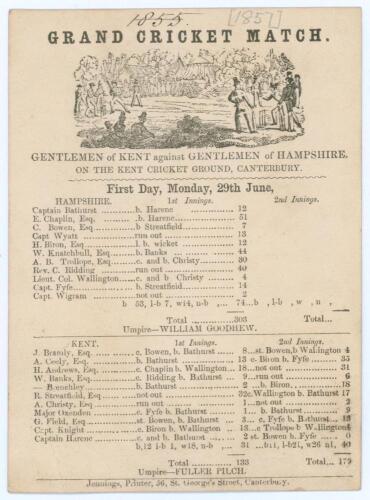 1855. [1857]
GRAND CRICKET MATCH.
GENTLEMEN of KENT against GENTLEMEN of HAMPSHIRE.
ON THE KENT CRICKET GROUND, CANTERBURY.
First Day, Monday, 29th June,
HAMPSHIRE. 1st Innings. 2nd Innings.
Captain Bathurst ............b. Harene ............ 12
E. Chaplin, Esq. ............b. Harene ............ 51
C. Bowen, Esq ............b Streatfield ............ 7
Capt Wyatt ............run out ............ 13
H. Biron, Esq ............l. b. wicket ............ 12
W. Knatchbull, Esq ............b. Banks ............ 44
A. B. Trollope, Esq ............c. and b. Christy ............ 30
Rev. C. Ridding ............run out ............ 40
Lieut. Col. Wallington ............c. and b Christy 4
Capt. Fyfe ............b. Streatfield ............ 14
Capt. Wigram ............not out ............ 2
b 53, l-b 7, w14, n-b ,... 74...b , l-b , w , n ,
Total ............303 Total...
Umpire—WILLIAM GOODHEW.
KENT. 1st Innings. 2nd Innings.
J. Bramly, Esq ............c. Bowen, b. Bathurst ... 8...st. Bowen, b Wallington 4
A. Ceely, Esq ............b. Bathurst ............ 13 c. Biron b. Fyfe ... 35
H. Andrews, Esq ............c. Chaplin b. Wallington ... 18...not out ............ 31
W. Banks, Esq ............c. Ridding b. Bathurst ... 9...run out ............ 6
Benchley ............b. Bathurst ............ 2 ...b. Biron ............18
R. Streatfield, Esq ............not out ............ 32c. Wallington b. Bathurst 17
A. Christy, Esq ............run out ............ 1...not out ............ 2
Major Oxenden ............c. Fyfe b. Bathurst ... 1... b. Bathurst
G. Field, Esq ............st. Bowen, b. Bathurst ... 3... c. Fyfe b. Bathurst
Capt. Knight ............c. Biron b. Bathurst ... 13...c. Trollope b Wallington
Captain Harene ............c. and b. Bathurst ... 2 st. Bowen b. Fyfe ... 0
b,12 l-b 1, w18, n-b , 31 ...b11, l-b21, w26 n1, 40
Total ............ 133 Total... 179
Umpire—FULLER PILCH.
Jennings, Printer, 56, St. George's Street, Canterbury.